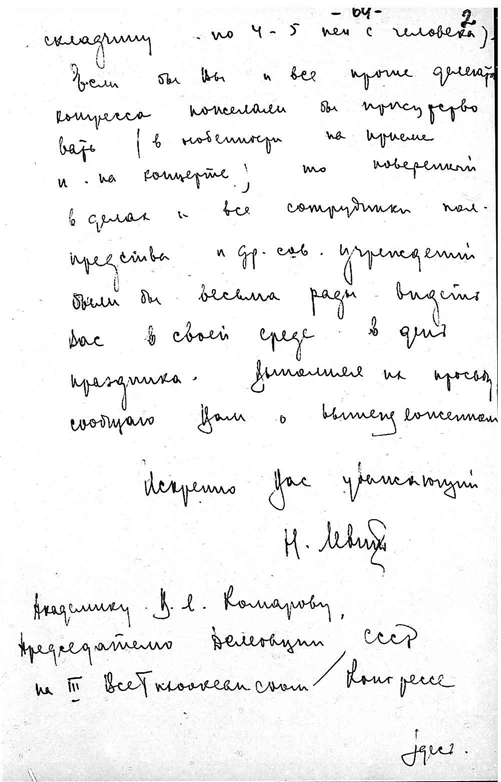 - 64 -
2
складчину по 4-5 иен с человека).
Если бы Вы и все проше делегаты
конгресса пожелали бы присутство
вать (в особенности на приеме
и на концерте) то поверенный
в делах и все сотрудники пол-
предства и др. сов. учреждений
были бы весьма рады видеть
Вас в своей среде в день
праздника. Выполняя их просьбу
сообщаю Вам о вышеизложенном
Искренно Вас уважающий
Н.
Академику В. Л. Комарову,
Председателю Делегации СССР
на III Всетихоокеанском Конгрессе
здесь.